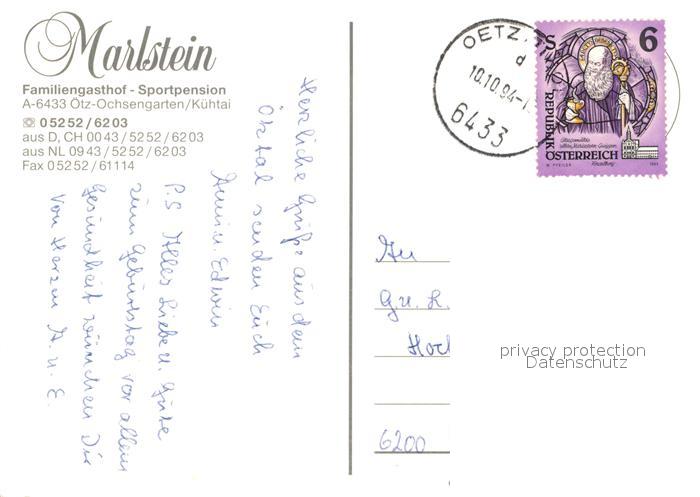 Marlstein
Familiengasthof - Sportpension
A-6433 Ötz-Ochsengarten/Kühtai
☎ 0 52 52 / 62 03
aus D, CH 00 43 / 52 52 / 62 03
aus NL 09 43 / 52 52 / 62 03
Fax 0 52 52 / 61114
Herzliche Grüße aus dem
Ötztal senden Euch
Anni u. Edwin
P.S Alles Liebe u. Gute
zum Geburtstag vor allem
Gesundheit wünschen Dir
von Herzen A. u. E.
OETZ
d
10.10.94
6433
6
REPUBLIK
ÖSTERREICH
An
Hoch
6200
privacy protection
Datenschutz